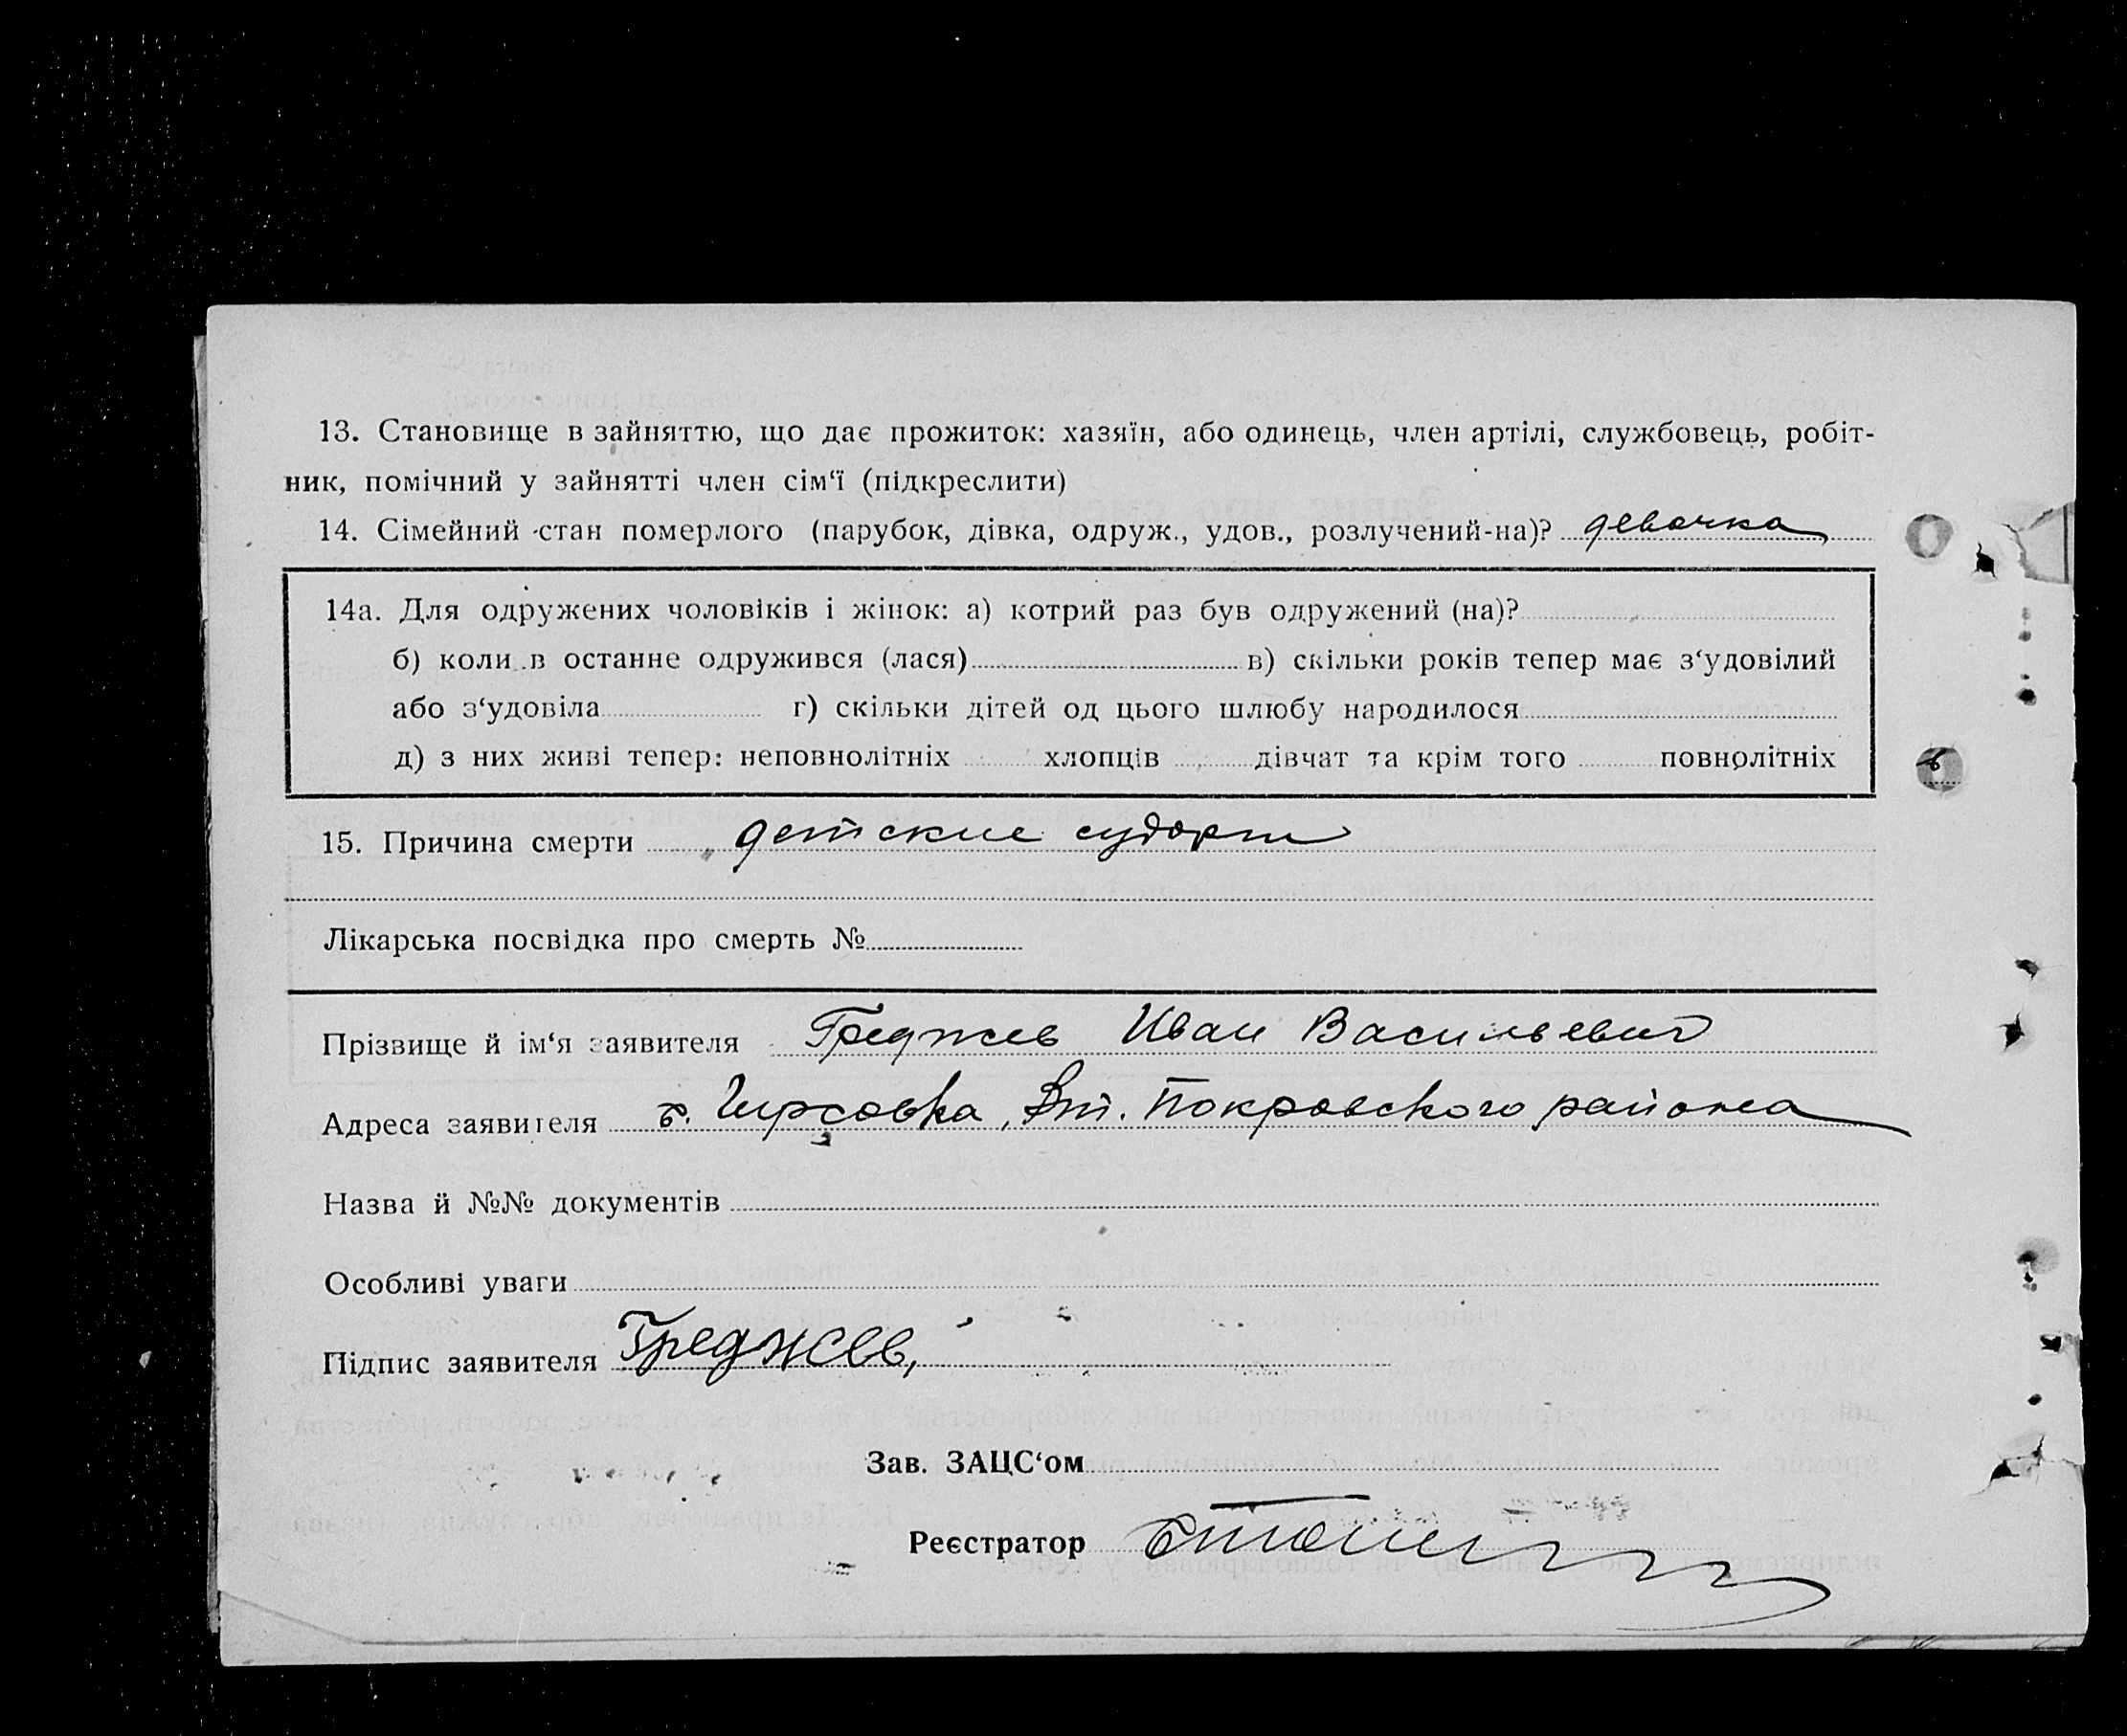 13. Становище в зайняттю, що дає прожиток: хазяїн, або одинець, член артілі, службовець, робіт-
ник, помічний у зайнятті член сім‘ї (підкреслити)
14. Сімейний стан померлого (парубок, дівка, одруж., удов., розлучений-на)? девочка
14а. Для одружених чоловіків і жінок: а) котрий раз був одружений (на)?
б) коли в останне одружився (лася) в) скільки років тепер має з‘удовілий
або з‘удовіла г) скільки дітей од цього шлюбу народилося
д) з них живі тепер: неповнолітніх хлопців дівчат та крім того повнолітніх
15. Причина смерти детские
Лікарська посвідка про смерть №
Прізвище й ім‘я заявителя Греджев Иван Васильевич
Адреса заявителя Гирсовка, Вт. Покровского района
Назва й №№ документів
Особливі уваги
Підпис заявителя Греджев,
Зав. ЗАЦС‘ом
Реєстратор